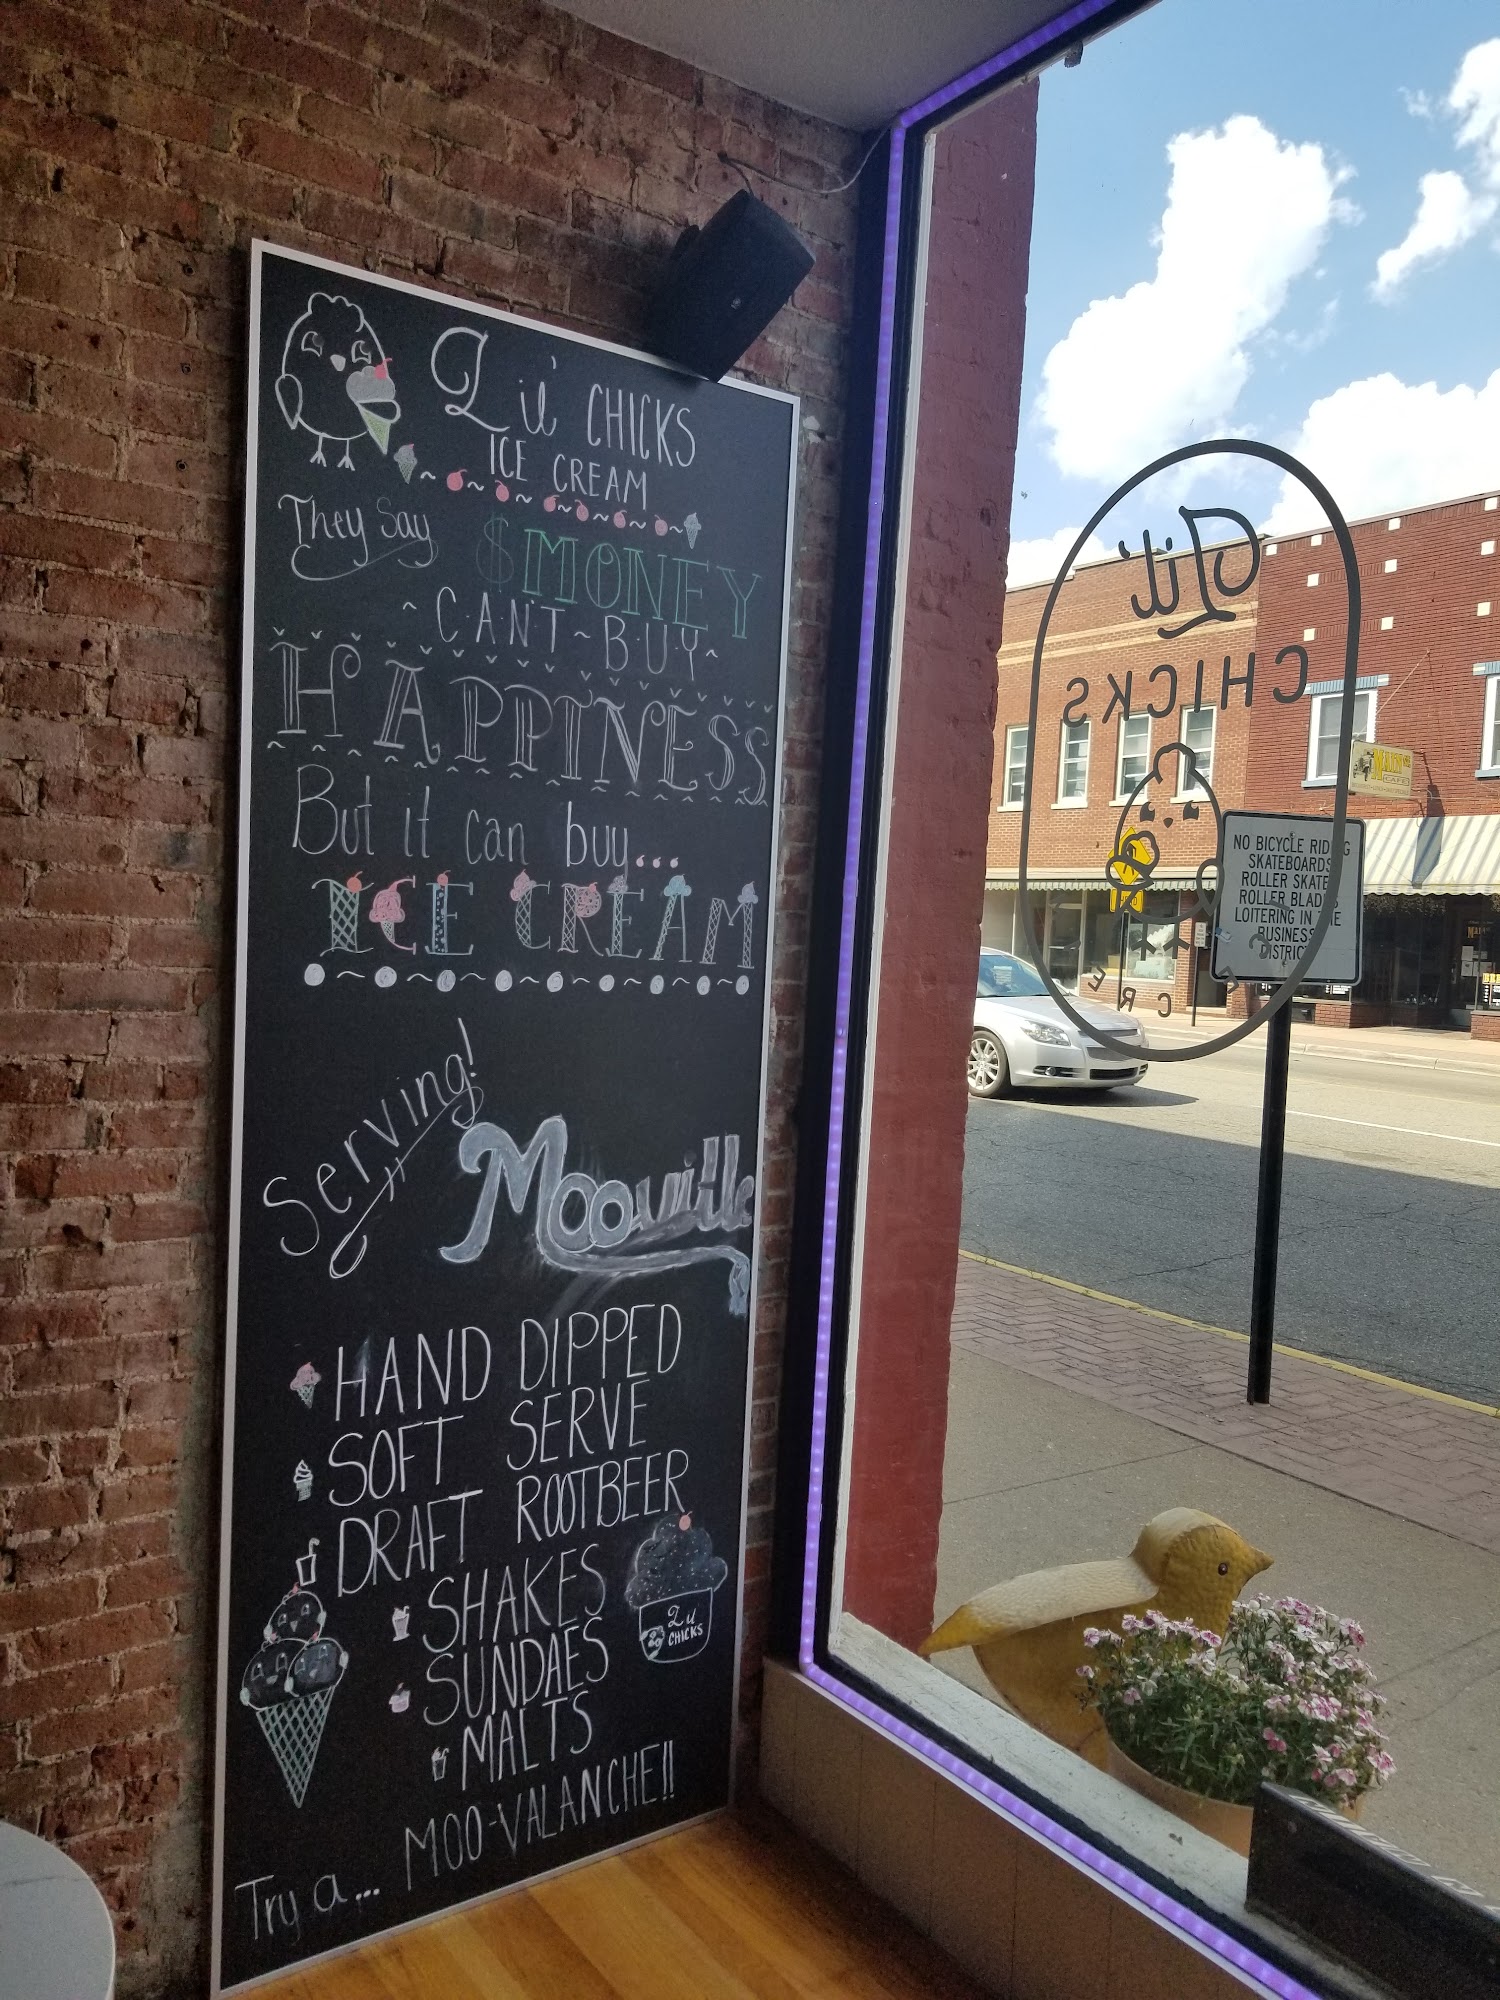 Lil' CHICKS
ICE CREAM
They Say $MONEY
~CAN'T~BUY~
HAPPINESS
But it can buy...
ICE CREAM
Serving!
Mooville
HAND DIPPED
SOFT SERVE
DRAFT ROOTBEER
SHAKES
SUNDAES
MALTS
Try a... MOO-VALANCHE!!
Lil'
CHICKS
Lil'
CHICKS
NO BICYCLE RIDING
SKATEBOARDS
ROLLER SKATES
ROLLER BLADES
LOITERING IN THE
BUSINESS
DISTRICT
MAIN ST
CAFE